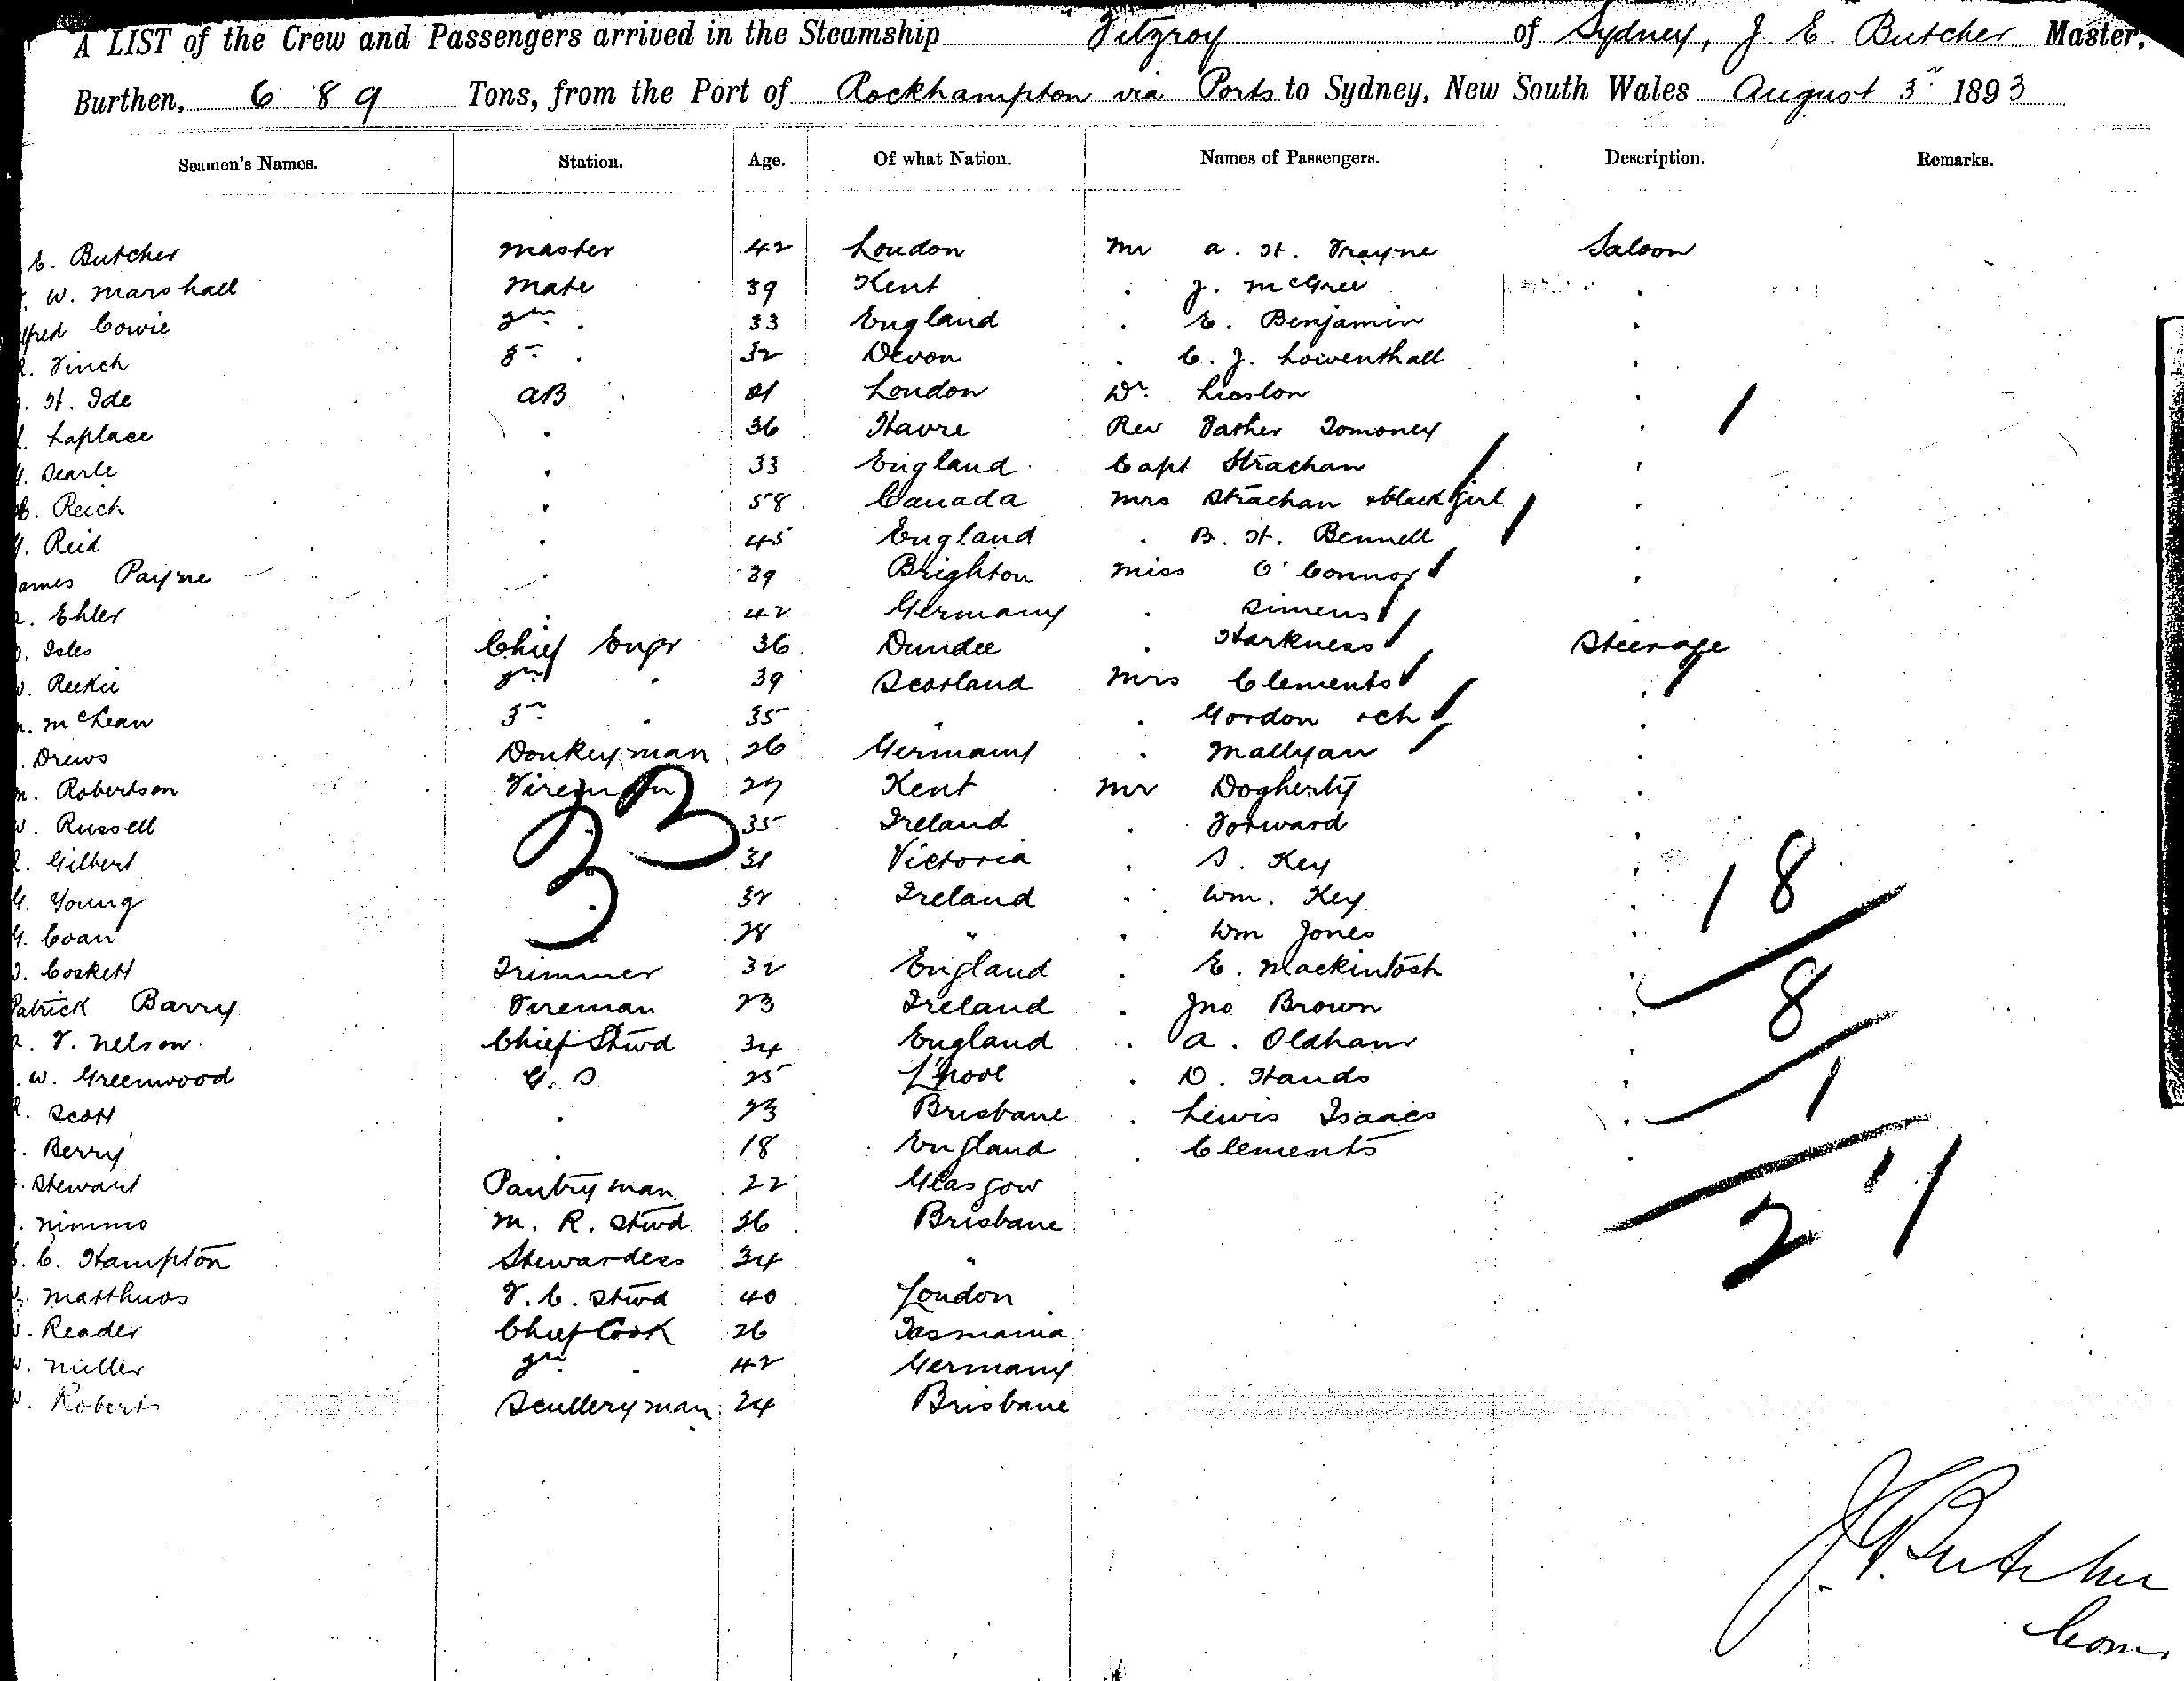 A LIST of the Crew and Passengers arrived in the Steamship Fitzroy of Sydney, J. E. Butcher Master,
Burthen, 689 Tons, from the Port of Rockhampton via Ports to Sydney, New South Wales August 3rd 1893
Seamen's Names. Station. Age. Of what Nation. Names of Passengers. Description. Remarks.
E. Butcher Master 42 London Mr A. H. Frayne Saloon
W. Marshall Mate 39 Kent . J. McGree .
fred Cowie 2nd . 33 England . E. Benjamin .
R. Finch 3rd . 32 Devon . C. J. Lowenthall .
. H. Ide AB 21 London Dr. .
. Laplace . 36 Havre Rev Father .
. Searle . 33 England Capt Strachan .
. Reich . 58 Canada Mrs Strachan & black girl .
. Reid . 45 England . B. H. Bennell .
ames Payne . 39 Brighton Miss O'Connor .
. Ehler . 42 Germany . Simens .
. Isles Chief Engr 36 Dundee . Harkness Steerage
. Reekie 2nd . 39 Scotland Mrs Clements .
. McLean 3rd . 35 " . Gordon & ch .
. Drews Donkeyman 26 Germany . Mallyan .
m. Robertson Fireman 29 Kent Mr Dogherty .
W. Russell . 35 Ireland . Forward .
. Gilbert . 31 Victoria . S. Key .
G. Young . 32 Ireland . Wm. Key .
G. Coan 28 " . Wm Jones .
33
18
. Coskett Trimmer 32 England . E. Mackintosh .
Patrick Barry Fireman 23 Ireland . Jno Brown .
8
. F. Nelson Chief Stwd 34 England . A. Oldham .
. W. Greenwood G. S 25 L'pool . D. Hands .
R. Scott . 23 Brisbane . Lewis Isaacs .
1
. Berry . 18 England . Clements .
. Stewart Pantryman 22 Glasgow
27
. Nimmo M. R. Stwd 26 Brisbane
. C. Hampton Stewardess 34 "
. Matthews F. C. Stwd 40 London
. Reader Chief Cook 26 Tasmania
W. Miller 2nd . 42 Germany
W. Roberts Scullery man 24 Brisbane
J. E. Butcher
Com.